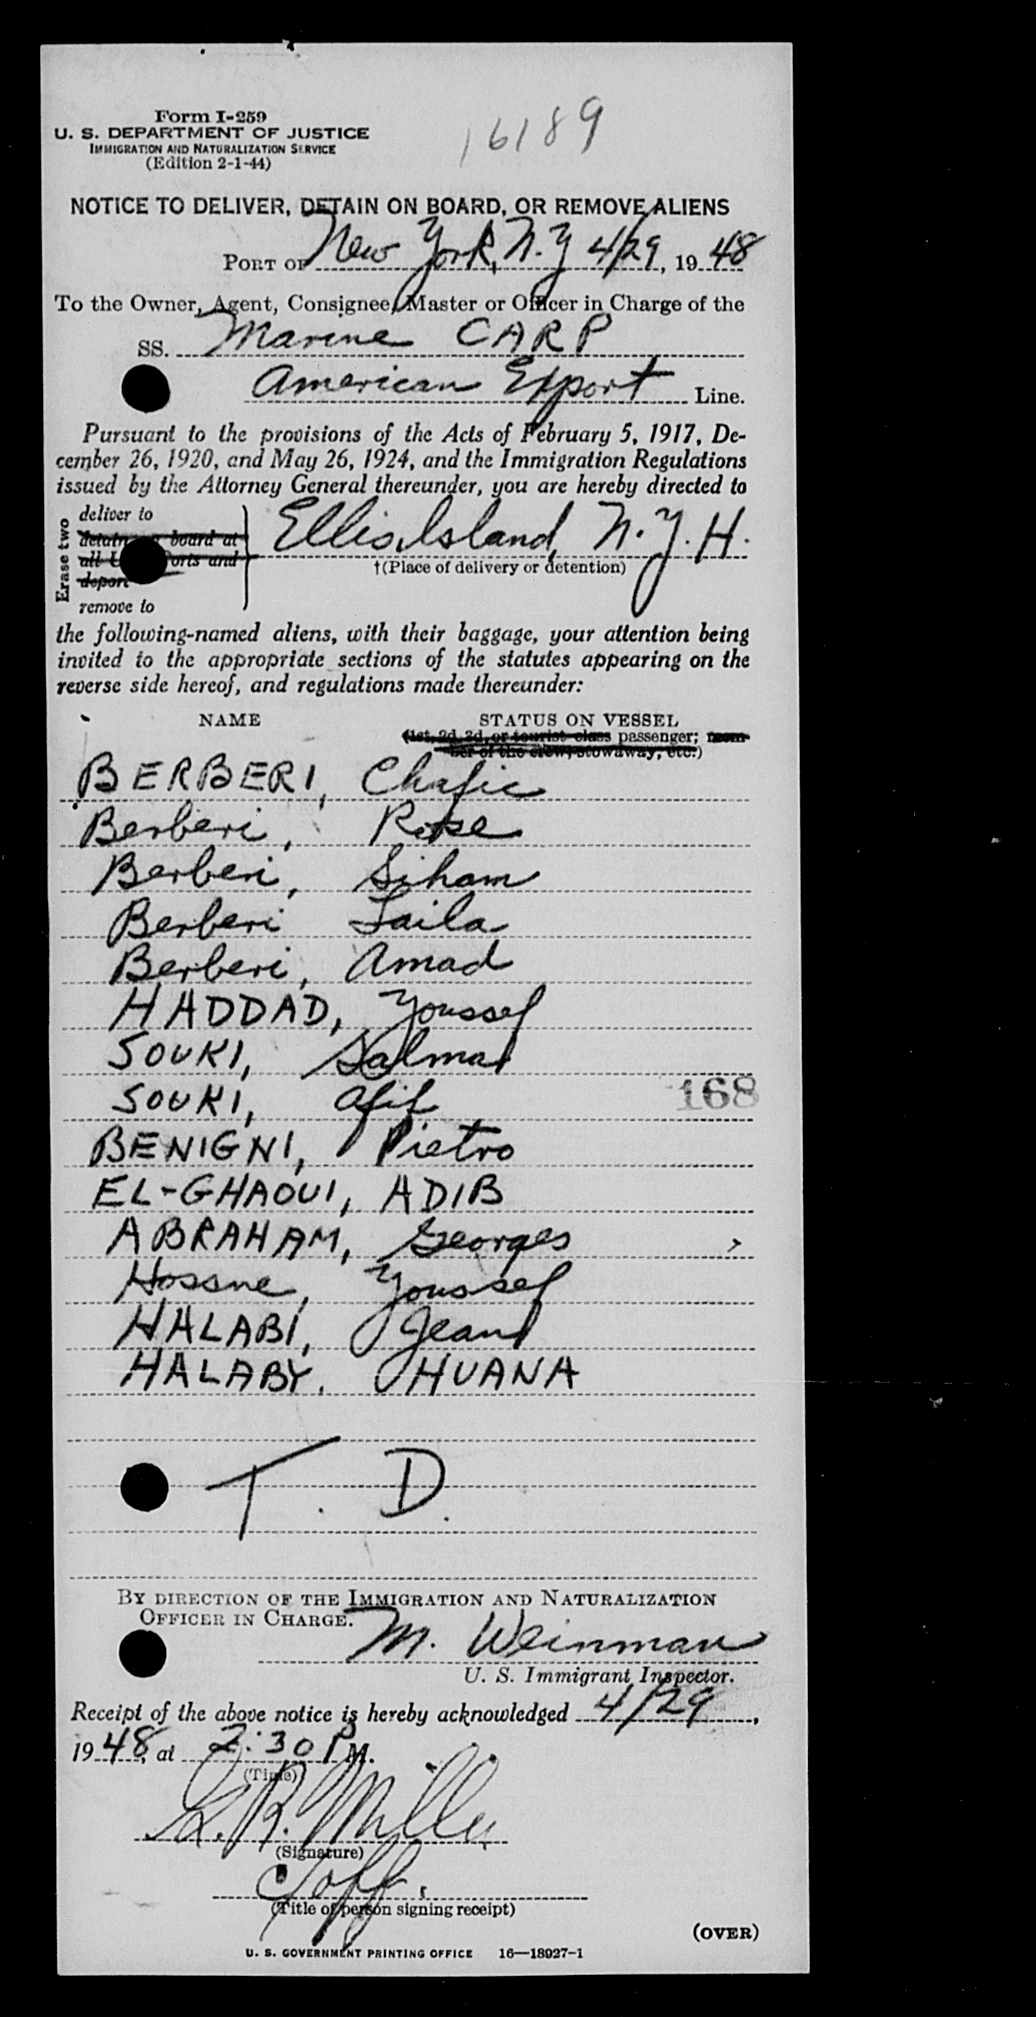 Form I-259
U. S. DEPARTMENT OF JUSTICE
IMMIGRATION AND NATURALIZATION SERVICE
(Edition 2-1-44)
16189
NOTICE TO DELIVER, DETAIN ON BOARD, OR REMOVE ALIENS
PORT OF New York, N.Y 4/29, 1948
To the Owner, Agent, Consignee, Master or Officer in Charge of the
SS. Marine CARP
American Export Line.
Pursuant to the provisions of the Acts of February 5, 1917, De-
cember 26, 1920, and May 26, 1924, and the Immigration Regulations
issued by the Attorney General thereunder, you are hereby directed to
Erase two
deliver to
detain board at
all ports and
deport
remove to
Ellis Island, N.Y.H.
†(Place of delivery or detention)
the following-named aliens, with their baggage, your attention being
invited to the appropriate sections of the statutes appearing on the
reverse side hereof, and regulations made thereunder:
NAME STATUS ON VESSEL
(1st, 2d, 3d, or tourist class passenger; mem-
ber of the crew, stowaway, etc.)
BERBERI, Chafic
Berberi, Rose
Berberi, Siham
Berberi Laila
Berberi, Amad
HADDAD, Youssef
SOUKI, Salma
SOUKI, Afif
168
BENIGNI, Pietro
EL-GHAOUI, ADIB
ABRAHAM, Georges
Hossne, Youssef
HALABI, Jean
HALABY. HUANA
T. D.
BY DIRECTION OF THE IMMIGRATION AND NATURALIZATION
OFFICER IN CHARGE.
M. Weinman
U. S. Immigrant Inspector.
Receipt of the above notice is hereby acknowledged 4/29,
1948, at 2:30 P M.
(Time)
R. Miller
(Signature)
(Title of person signing receipt)
(OVER)
U. S. GOVERNMENT PRINTING OFFICE 16—18927-1